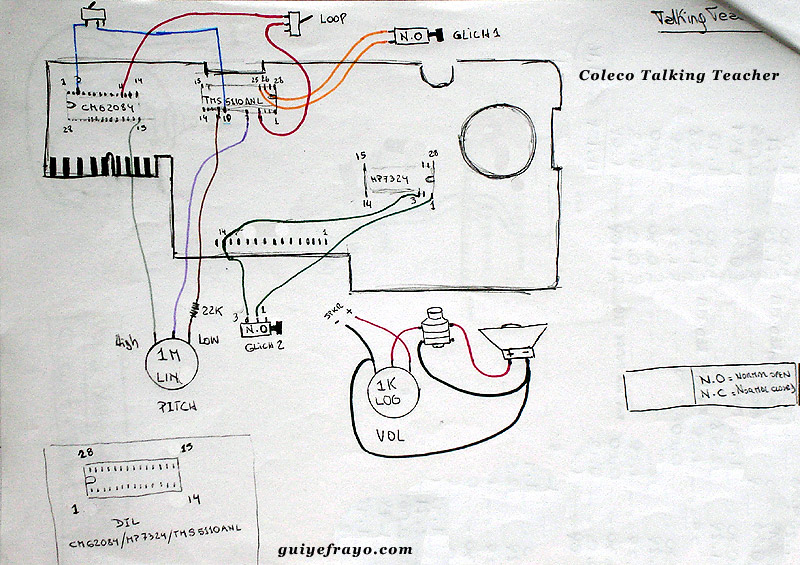 LOOP
N.O GLICH 1
Talking Tea
Coleco Talking Teacher
1 14
CM62084
28 15
15 25 26 28
TMS 5110ANL
14 10 1
15 28
MP7324
14 3 1
14 1
22K
High Low
1M
LIN
PITCH
3 1
N.O
GLICH 2
SPKR
- +
1K
LOG
VOL
N.O = NORMAL OPEN
N.C = NORMAL CLOSED
28 15
1 14
DIL
CM62084/MP7324/TMS5110ANL
guiyefrayo.com